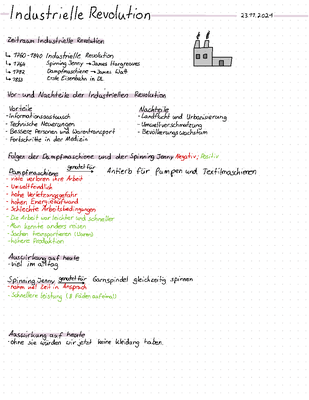 Industrielle Revolution
23.11.2021
Zeitraum Industrielle Revolution
↳ 1760-1840 Industrielle Revolution
↳ 1764 Spinning Jenny → James Hargreaves
↳ 1782 Dampfmaschine → James Watt
↳ 1835 Erste Eisenbahn in DL
Vor- und Nachteile der Industriellen Revolution
Vorteile
Nachteile
- Informationsaustausch
- Landflucht und Urbanisierung
- Technische Neuerungen
- Umweltverschmutzung
- Bessere Personen und Warentransport
- Bevölkerungswachstum
- Fortschritte in der Medizin
Folgen der Dampfmaschiene und der Spinning Jenny Negativ; Positiv
Dampfmaschiene genutzt für → Antrieb für Pumpen und Textilmaschienen
- viele verloren ihre Arbeit
- Umweltfeindlich
- hohe Verletzungsgefahr
- hohen Energieaufwand
- Schlechte Arbeitsbedingungen
- Die Arbeit war leichter und schneller
- Man konnte anders reisen
- Sachen transportieren (Waren)
- höhere Produktion
Auswirkung auf heute
- viel im alltag
Spinning Jenny genutzt für → Garnspindel gleichzeitig spinnen
- nahm viel Zeit in Anspruch
- Schnellere leistung (8 Fäden aufeinmal)
Auswirkung auf heute
- ohne sie würden wir jetzt keine Kleidung haben.